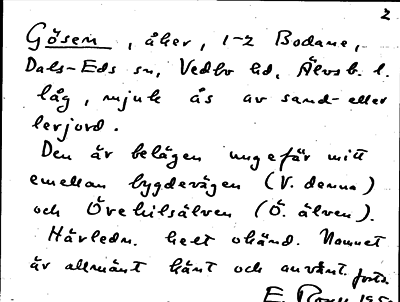 2
Gösen, åker, 1-2 Bodane,
Dals-Eds sn, Vedbo hd, Älvsb. l.
låg, mjuk ås av sand- eller
lerjord.
Den är belägen ungefär mitt
emellan bygdevägen (V. denna)
och Örekilsälven (Ö. älven).
Härledn. helt okänd. Namnet
är allmänt känt och använt.
E.